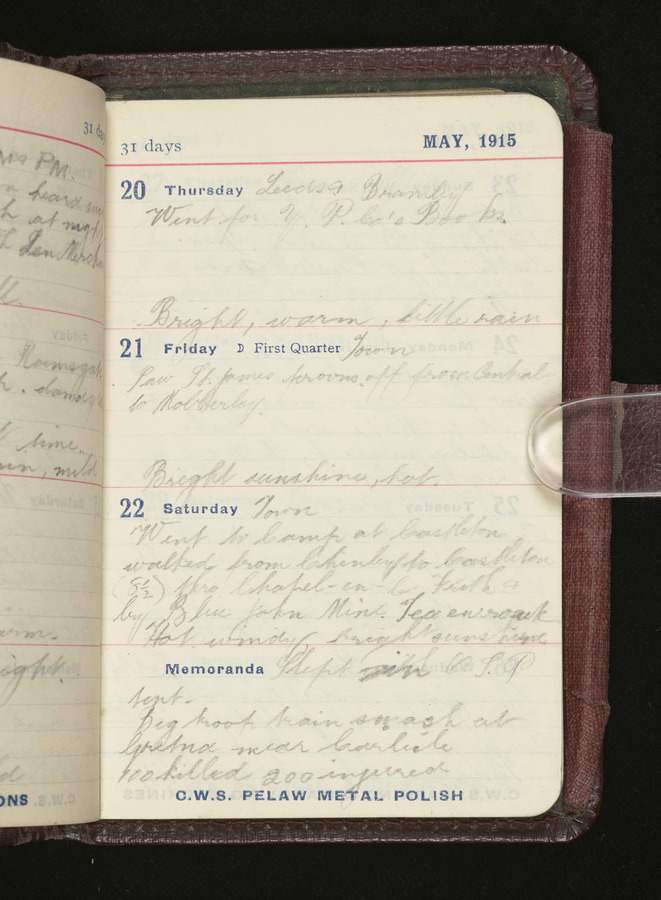 31 da
PM.
heard
h at nigh
Len Merch
ll.
Ramsgat
h. damag
time.
mild
arm.
ight.
d
ONS
31 days MAY, 1915
20 Thursday Leeds & Bramley
Went for Y. P. Co's Books.
Bright, warm, little rain
21 Friday First Quarter Town
Saw St. James throvns off from Central
to Mobberley.
Bright sunshine, hot.
22 Saturday Town
Went to Camp at Castleton
walked from Chinley to Castleton
(8½) thro Chapel-en-le Frith &
by Blue John Mine. Tea enroute
Hot windy bright sunshine
Memoranda Slept in C. S. P
tent.
Big troop train smash at
Gretna near Carlisle
100 killed 200 injured
C.W.S. PELAW METAL POLISH